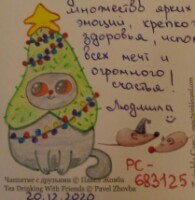 Множество ярких
эмоций, крепкого
здоровья, испол
всех мечт и
огромного
счастья!
Людмила
РС-
683125.
Чаепития с друзьями © Павел Жовба
Tea Drinking With Friends © Pavel Zhovba
20.12.2020